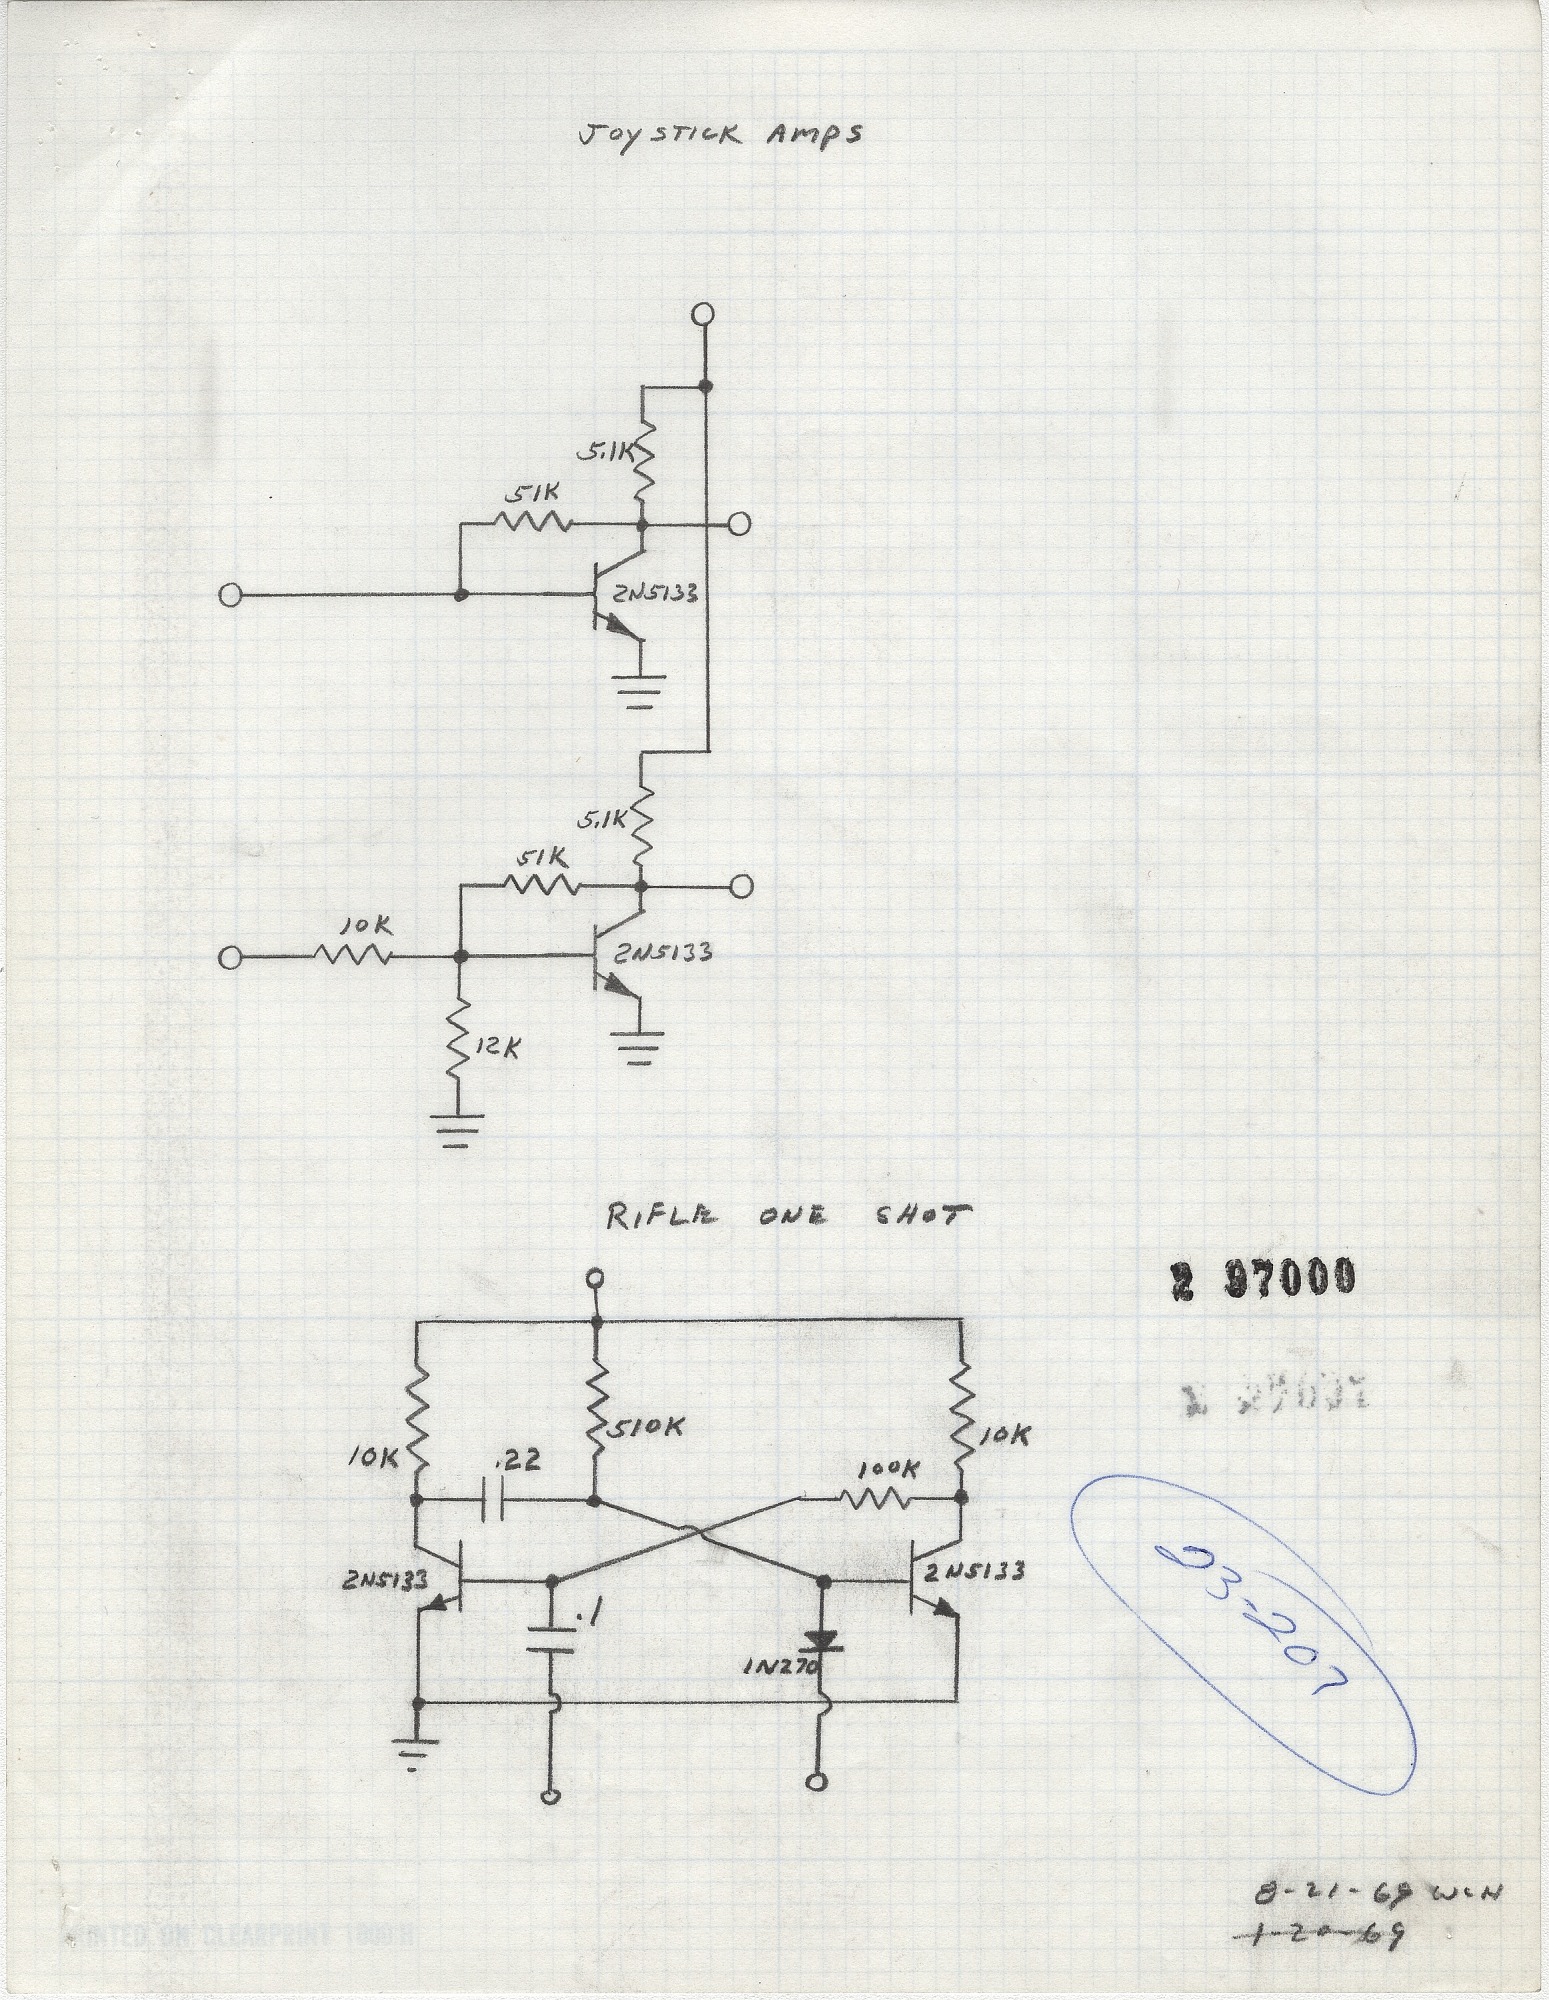 JOYSTICK AMPS
5.1K
51K
2N5133
5.1K
51K
10K
2N5133
12K
RIFLE ONE SHOT
2 97000
510K
10K
10K
.22
100K
2N5133
2N5133
.1
1N270
03-207
8-21-69 WCN
1-20-69
PRINTED ON CLEARPRINT 1000H